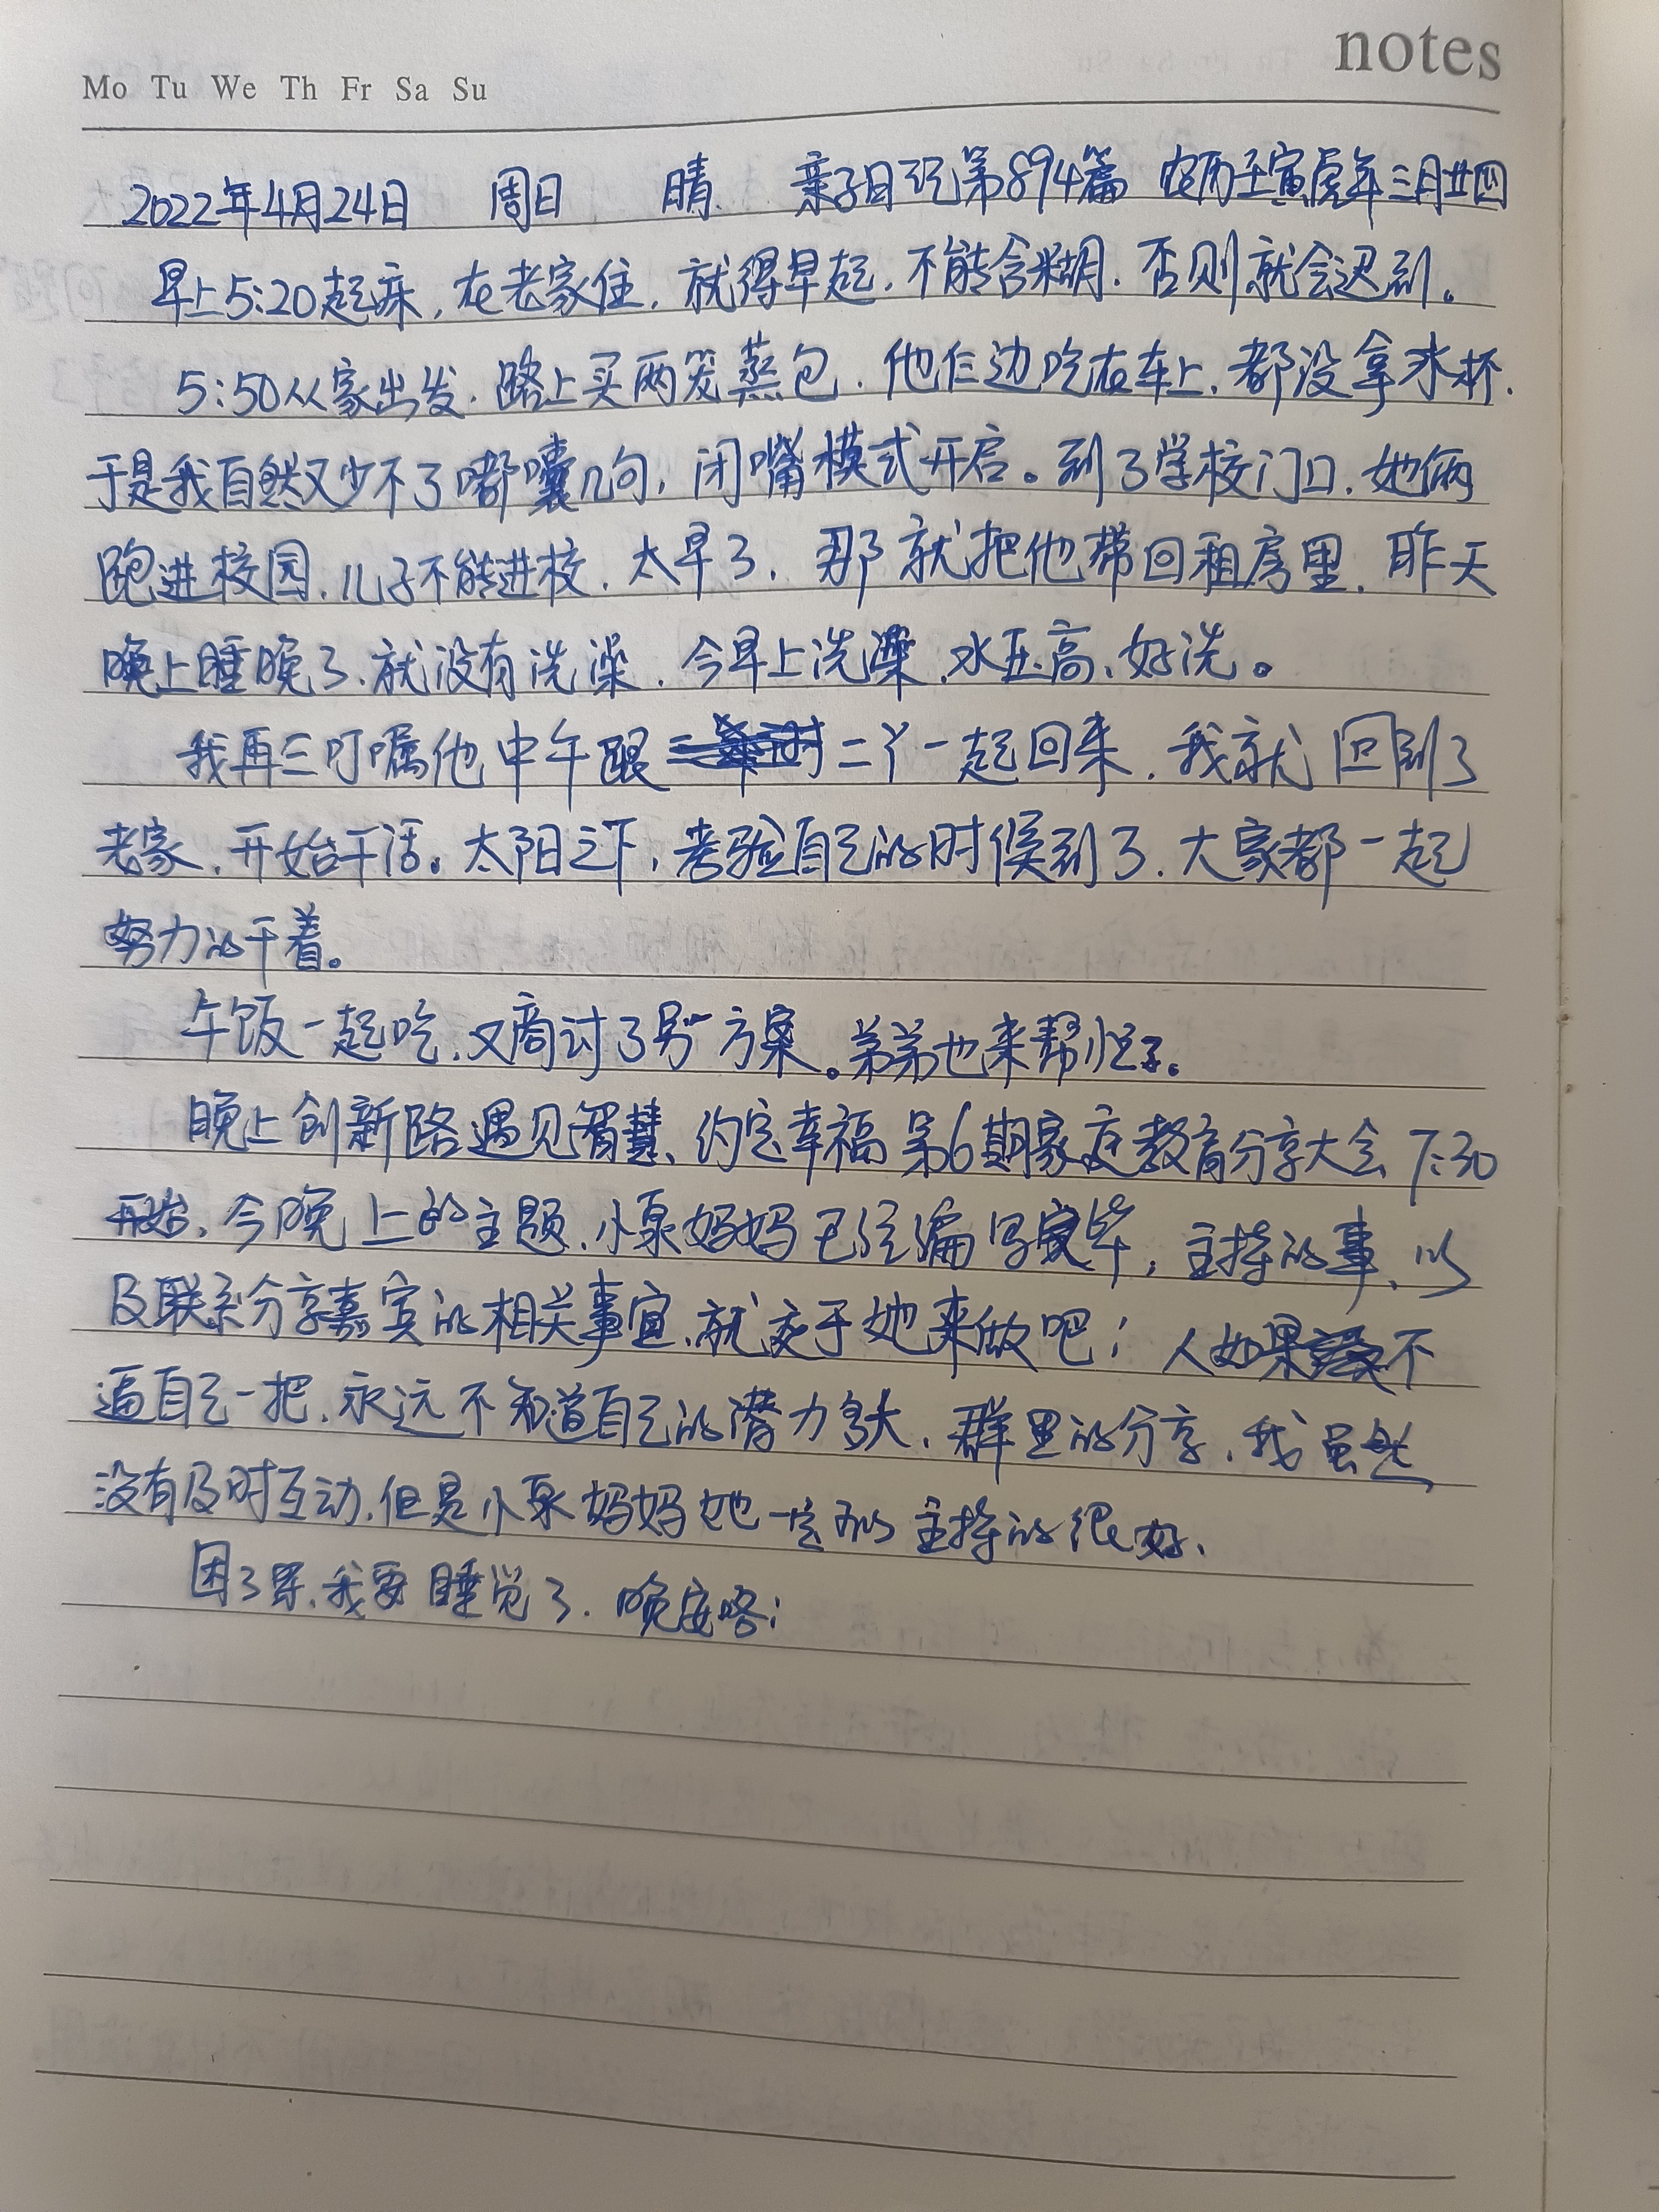 notes
Mo Tu We Th Fr Sa Su
2022年4月24日 周日 晴 亲子日记第894篇 农历壬寅虎年三月廿四
早上5:20起床,在老家住,就得早起,不能含糊,否则就会迟到。
5:50从家出发,路上买两笼蒸包,他仨边吃在车上,都没拿水杯,
于是我自然又少不了嘟囔几句,闭嘴模式开启。到了学校门口,她俩
跑进校园,儿子不能进校,太早了,那就把他带回租房里,昨天
晚上睡晚了,就没有洗澡,今早上洗澡,水压高、好洗。
我再三叮嘱他中午跟二丫一起回来,我就回到了
老家,开始干活。太阳之下,考验自己的时候到了,大家都一起
努力的干着。
午饭一起吃,又商讨了另一方案。弟弟也来帮忙了。
晚上创新路遇见智慧、约定幸福第6期家庭教育分享大会7:30
开始,今晚上的主题,小泉妈妈已经编写完毕,主持的事,以
及联系分享嘉宾的相关事宜,就交于她来做吧!人如果不
逼自己一把,永远不知道自己的潜力多大,群里的分享,我虽然
没有及时互动,但是小泉妈妈她一定的主持的很好,
困了累,我要睡觉了,晚安咯!